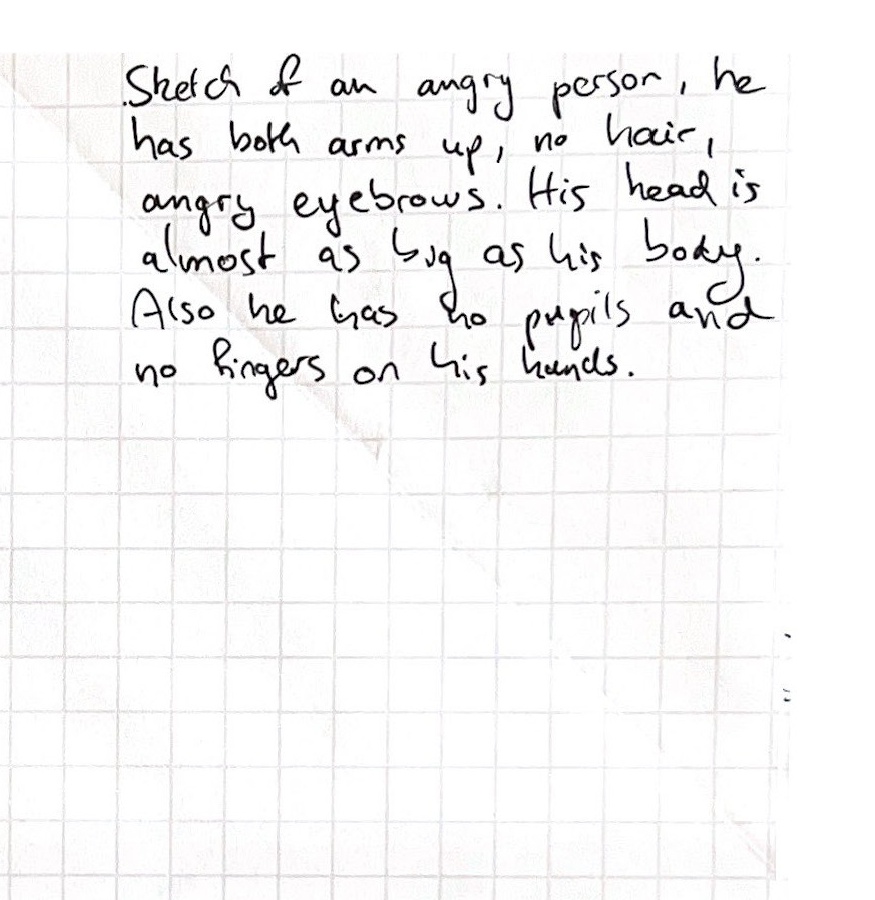 Sketch of an angry person, he
has both arms up, no hair,
angry eyebrows. His head is
almost as big as his body.
Also he has no pupils and
no fingers on his hands.